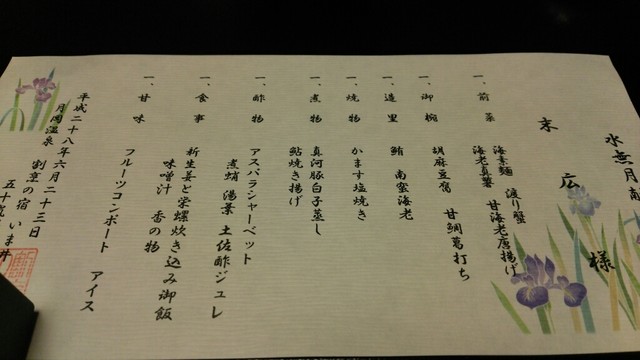 水無月
末広 様
一、前菜
海素麺 渡り蟹
海老真薯 甘海老唐揚げ
一、御椀
胡麻豆腐 甘鯛葛打ち
一、造里
鮪 南蛮海老
一、焼物
かます塩焼き
一、煮物
真河豚白子蒸し
鮎焼き揚げ
一、酢物
アスパラシャーベット
煮蛸 湯葉 土佐酢ジュレ
一、食事
新生姜と栄螺炊き込み御飯
味噌汁 香の物
一、甘味
フルーツコンポート アイス
平成二十八年六月二十三日
月岡温泉 割烹の宿 いま井
五十嵐